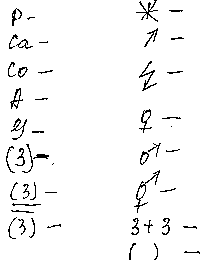 P –
Ca –
Co –
A –
(3) –
(3) –
(3) –
Ж –
↗ –
♀ –
♂ –
⚥ –
3+3 –
( ) –